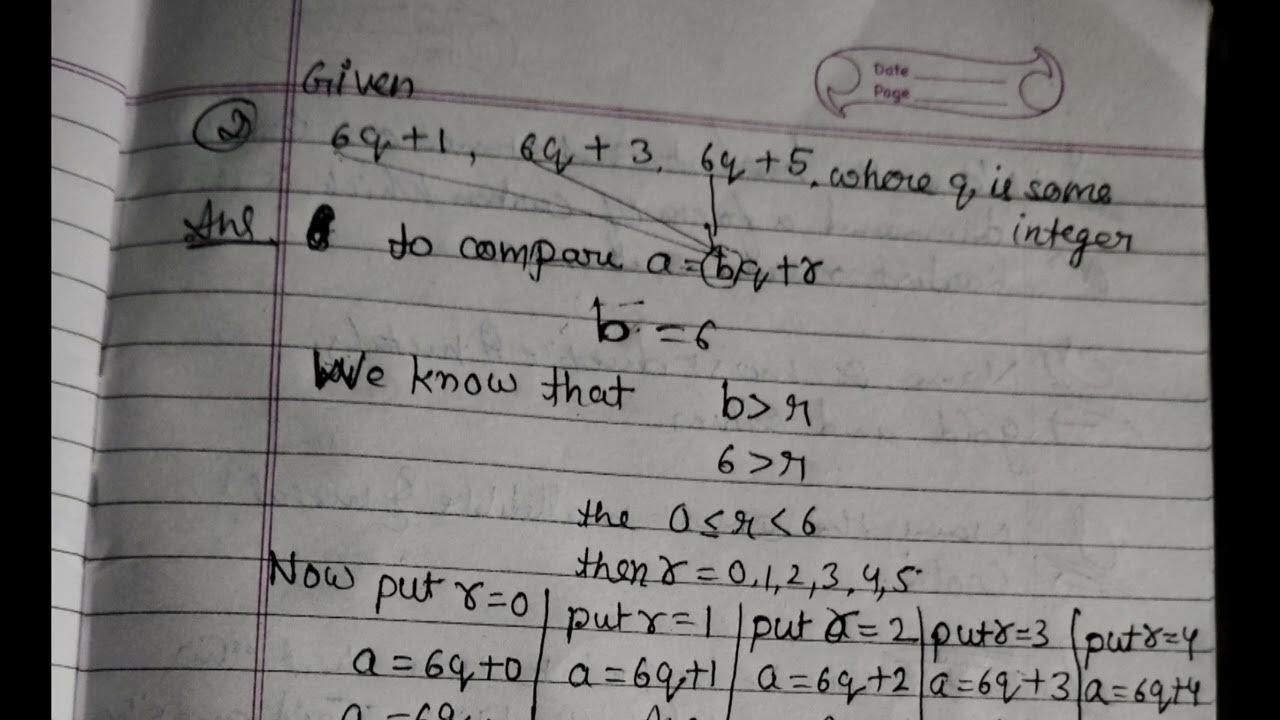 Date
Page
Given
② 6q+1, 6q+3, 6q+5, where q is some
integer
Ans. to compare a=bq+r
b=6
We know that b>r
6>r
the 0≤r<6
then r=0,1,2,3,4,5
Now put r=0 | put r=1 | put r=2 | put r=3 | put r=4
a=6q+0 | a=6q+1 | a=6q+2 | a=6q+3 | a=6q+4
a=6q